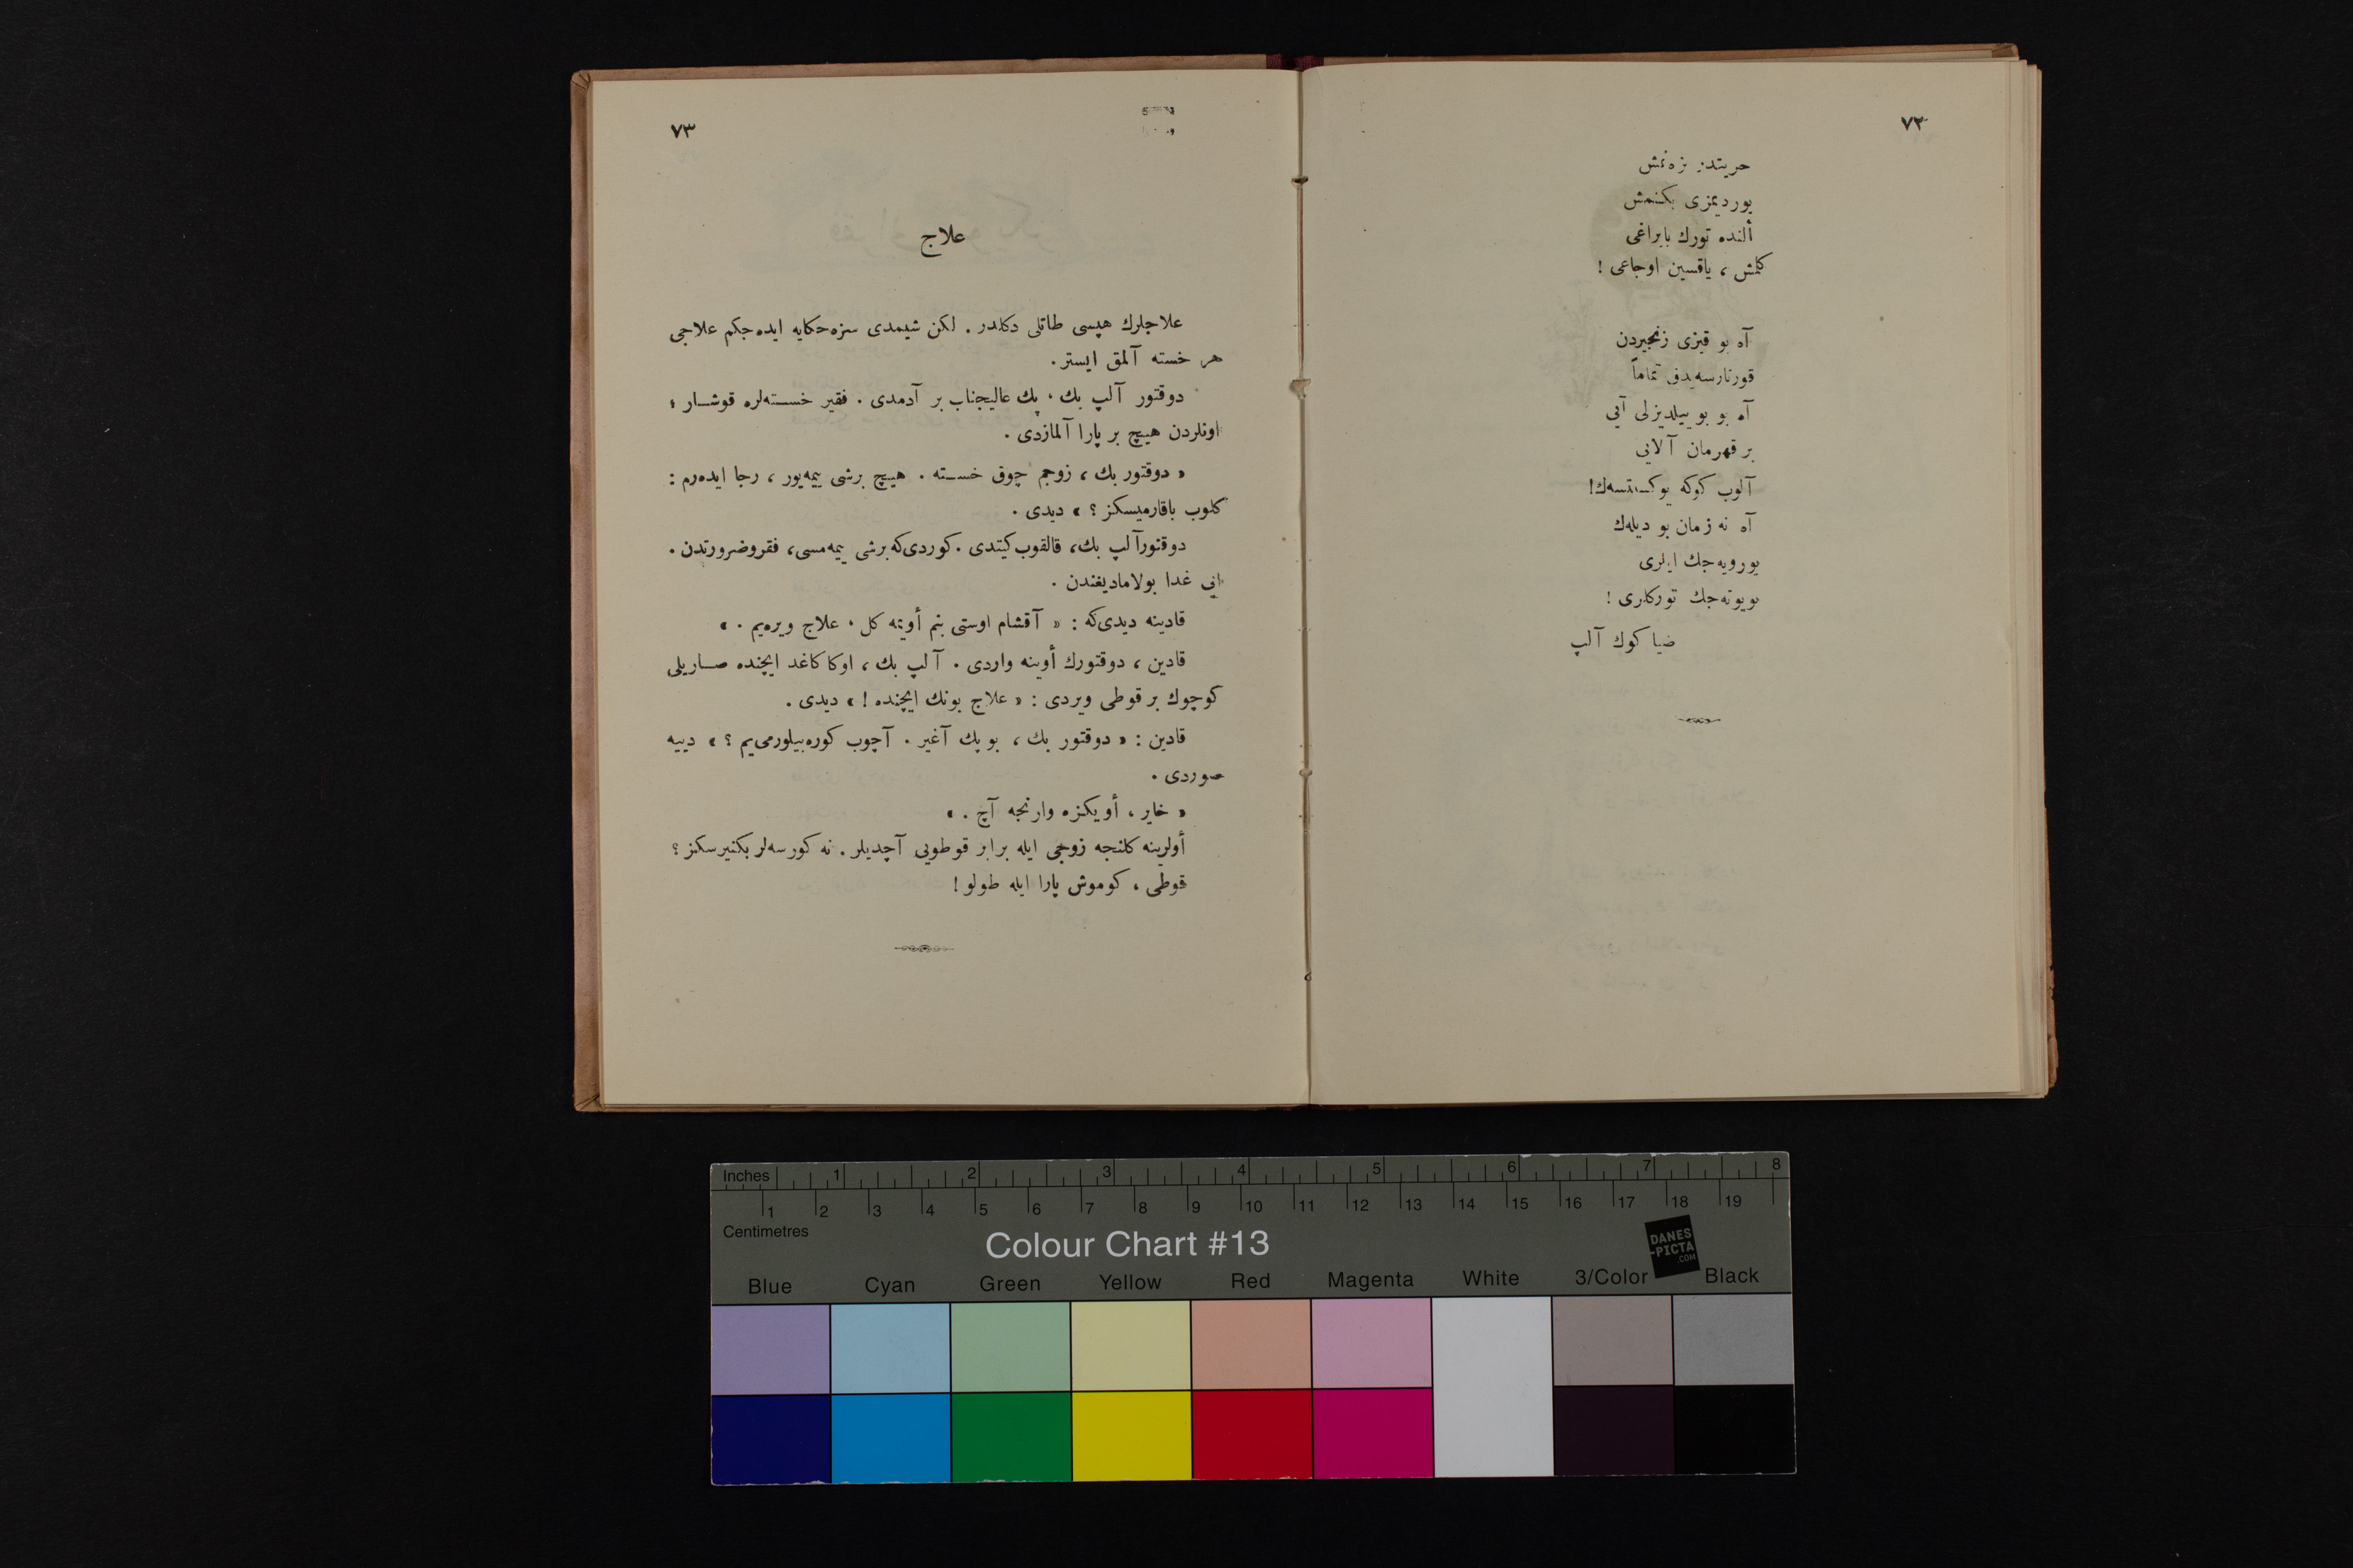 ٧٢
حريتدن بزه‌نمش
يورديمزى بكنمش
ألنده تورك بايراغى
كلمش ، ياقسين اوجاعى !
آه بو قيزى زنجيردن
قورتارسه‌يدق تماماً
آه بو بو ييلديزلى آيى
بر قهرمان آلايى
آلوب كوكه يوكسلتسه‌ك!
آه نه زمان بو ديله‌ك
يورويه‌جك ايلرى
بويوته‌جك توركلرى !
ضيا كوك آلپ
٧٣
علاج
علاجلرك هپسى طاتلى دكلدر . لكن شيمدى سزه حكايه ايده‌جكم علاجى
هر خسته آلمق ايستر.
دوقتور آلپ بك ، پك عاليجناب بر آدمدى . فقير خسته‌لره قوشار ؛
اونلردن هيچ بر پارا آلمازدى .
« دوقتور بك ، زوجم چوق خسته . هيچ برشى ييمه‌يور ، رجا ايده‌رم :
كلوب باقارميسكز ؟ » ديدى .
دوقتور آلپ بك، قالقوب كيتدى . كوردى كه برشى ييمه‌مسى، فقر وضرورتدن .
ايى غدا بولاماديغندن .
قادينه ديدى كه : « آقشام اوستى بنم أويمه كل ، علاج ويره‌يم . »
قادين ، دوقتورك أوينه واردى . آلپ بك ، اوكا كاغد ايچنده صاريلى
كوچوك بر قوطى ويردى : « علاج بونك ايچنده ! » ديدى .
قادين : « دوقتور بك ، بو پك آغير . آچوب كوره‌بيلورمى‌يم ؟ » دييه
صوردى .
« خاير ، أويكزه وارنجه آچ . »
أولرينه كلنجه زوجى ايله برابر قوطويى آچديلر . نه كورسه‌لر بكنيرسكز ؟
قوطى ، كوموش پارا ايله طولو !
Inches 1 2 3 4 5 6 7 8
1 2 3 4 5 6 7 8 9 10 11 12 13 14 15 16 17 18 19
Centimetres
Colour Chart #13
DANES
-PICTA
.COM
Blue Cyan Green Yellow Red Magenta White 3/Color Black